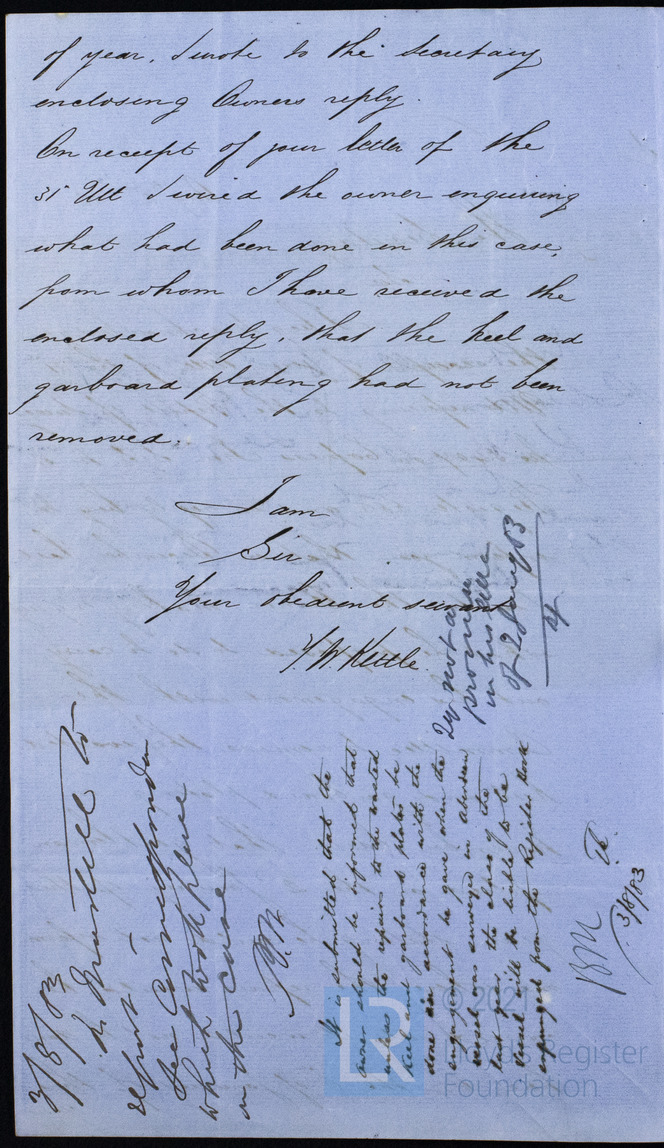 of year. I wrote to the Secretary
enclosing Owners reply.
On receipt of your letter of the
31st Ult I wired the owner enquiring
what had been done in this case,
from whom I have received the
enclosed reply, that the keel and
garboard plating had not been
removed.
I am
Sir
Your obedient servant
Y. W. Kettle
not a
promise
in his
of 2 Jany 83
3/8/83
Mr
to
report –
See Correspondence
which took place
in this case
It is submitted that the
owner should be informed that
unless the repairs to the wasted
keel and garboard plates be
done in accordance with the
engagement he gave when the
vessel was surveyed in Aberdeen
last year the class of the
vessel will be liable to be
expunged from the Register Book
BM
3/8/83
LR
© 2021
Lloyd's Register
Foundation